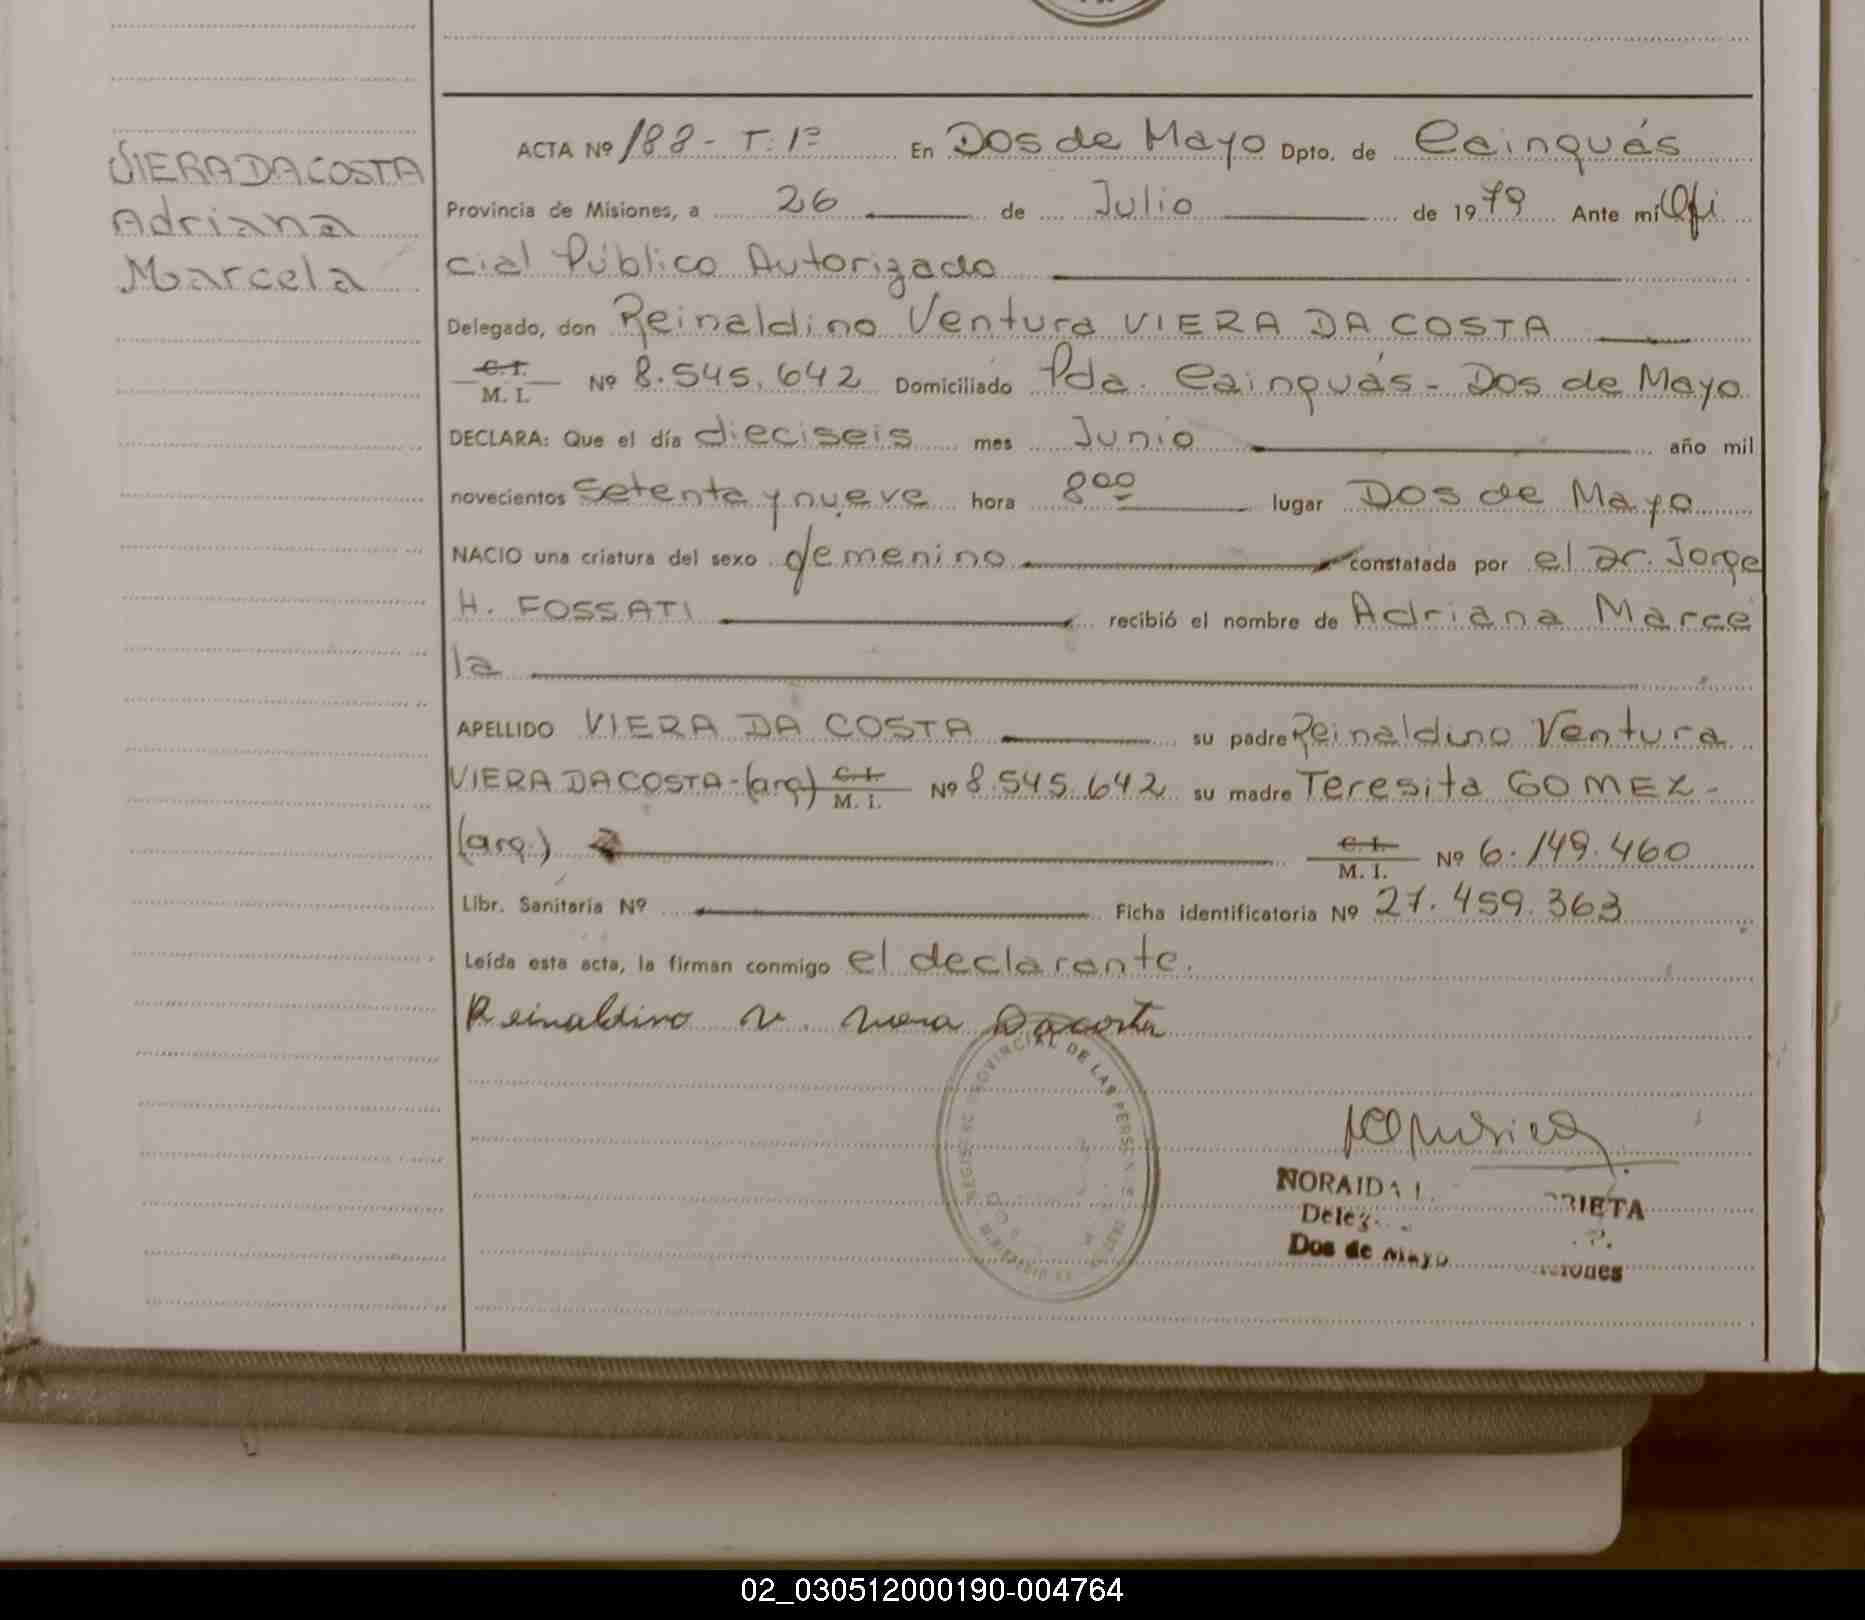 VIERA DA COSTA
Adriana
Marcela
ACTA Nº 188 - T. 1º En Dos de Mayo Dpto. de Cainguás
Provincia de Misiones, a 26 de Julio de 1979 Ante mí Ofi
cial Público Autorizado
Delegado, don Reinaldino Ventura VIERA DA COSTA
C.I. M. I. Nº 8.545.642 Domiciliado Pda. Cainguás - Dos de Mayo
DECLARA: Que el día dieciseis mes Junio año mil
novecientos setenta y nueve hora 8 00 lugar Dos de Mayo
NACIO una criatura del sexo femenino constatada por el Dr. Jorge
H. FOSSATI recibió el nombre de Adriana Marce
la
APELLIDO VIERA DA COSTA su padre Reinaldino Ventura
VIERA DA COSTA - (arg) C.I. M. I. Nº 8.545.642 su madre Teresita GOMEZ -
(arg.) C.I. M. I. Nº 6.149.460
Libr. Sanitaria Nº Ficha identificatoria Nº 27.459.363
Leída esta acta, la firman conmigo el declarante.
Reinaldino V. Viera Dacosta
PROVINCIAL DE LAS PERSONAS
NORAIDA
Dos de Mayo
02_030512000190-004764